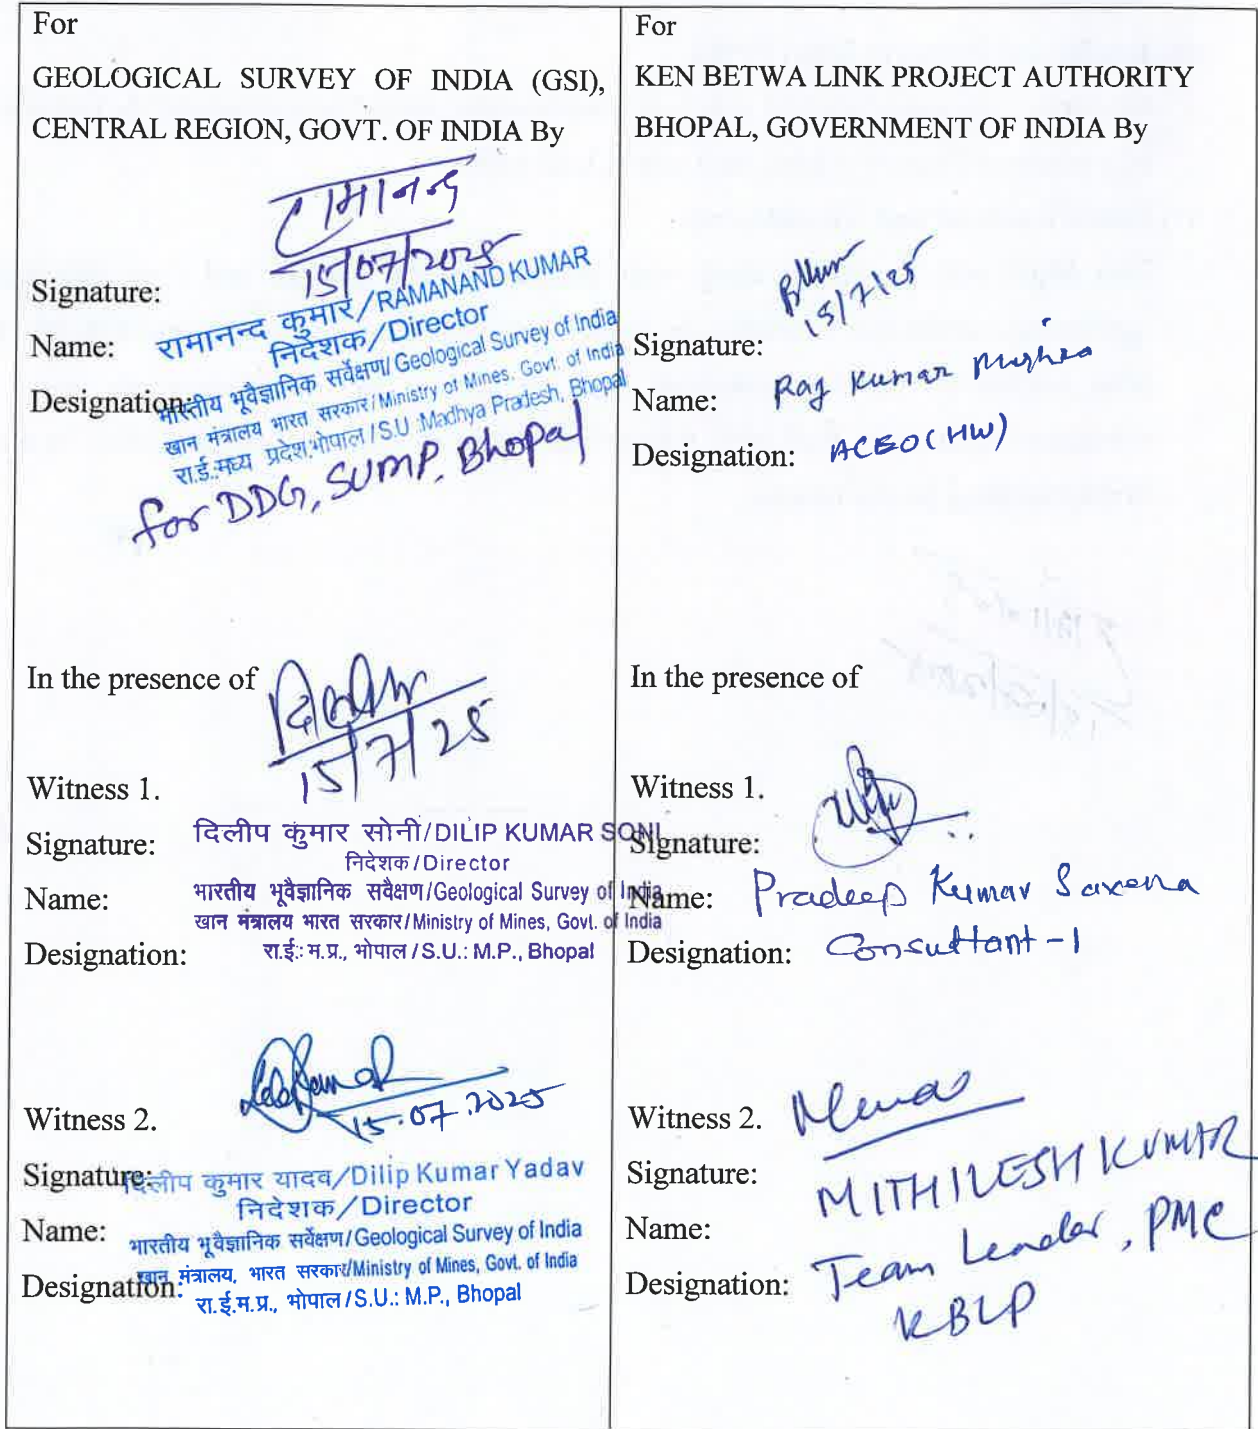 For
GEOLOGICAL SURVEY OF INDIA (GSI),
CENTRAL REGION, GOVT. OF INDIA By
रामानन्द
15/07/2025
Signature:
Name:
Designation:
रामानन्द कुमार/RAMANAND KUMAR
निदेशक/Director
भारतीय भूवैज्ञानिक सर्वेक्षण/Geological Survey of India
खान मंत्रालय भारत सरकार/Ministry of Mines, Govt. of India
रा.ई.:मध्य प्रदेश,भोपाल/S.U.:Madhya Pradesh, Bhopal
for DDG, SUMP, Bhopal
In the presence of
15/7/25
Witness 1.
Signature:
Name:
Designation:
दिलीप कुमार सोनी/DILIP KUMAR SONI
निदेशक/Director
भारतीय भूवैज्ञानिक सर्वेक्षण/Geological Survey of India
खान मंत्रालय भारत सरकार/Ministry of Mines, Govt. of India
रा.ई.: म.प्र., भोपाल/S.U.: M.P., Bhopal
15.07.2025
Witness 2.
Signature:
Name:
Designation:
दिलीप कुमार यादव/Dilip Kumar Yadav
निदेशक/Director
भारतीय भूवैज्ञानिक सर्वेक्षण/Geological Survey of India
खान मंत्रालय, भारत सरकार/Ministry of Mines, Govt. of India
रा.ई.म.प्र., भोपाल/S.U.: M.P., Bhopal
For
KEN BETWA LINK PROJECT AUTHORITY
BHOPAL, GOVERNMENT OF INDIA By
15/7/25
Signature:
Name: Raj Kumar Mishra
Designation: ACEO(HW)
In the presence of
Witness 1.
Signature:
Name: Pradeep Kumar Saxena
Designation: Consultant-1
Witness 2.
Signature:
MITHILESH KUMAR
Name:
Team Leader, PMC
Designation:
KBLP